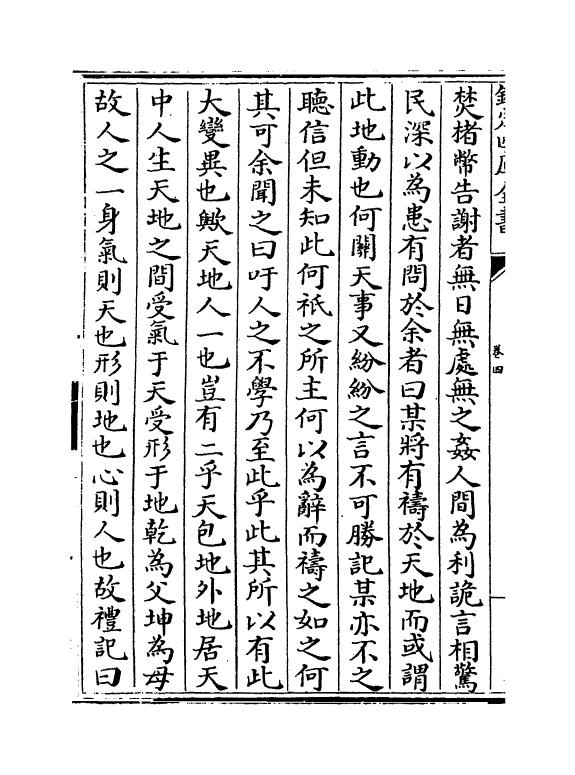 欽定四庫全書
卷四
焚楮幣告謝者無日無處無之姦人間為利詭言相驚
民深以為患有問於余者曰某將有禱於天地而或謂
此地動也何關天事又紛紛之言不可勝記某亦不之
聽信但未知此何祇之所主何以為辭而禱之如之何
其可余聞之曰吁人之不學乃至此乎此其所以有此
大變異也歟天地人一也豈有二乎天包地外地居天
中人生天地之間受氣于天受形于地乾為父坤為母
故人之一身氣則天也形則地也心則人也故禮記曰